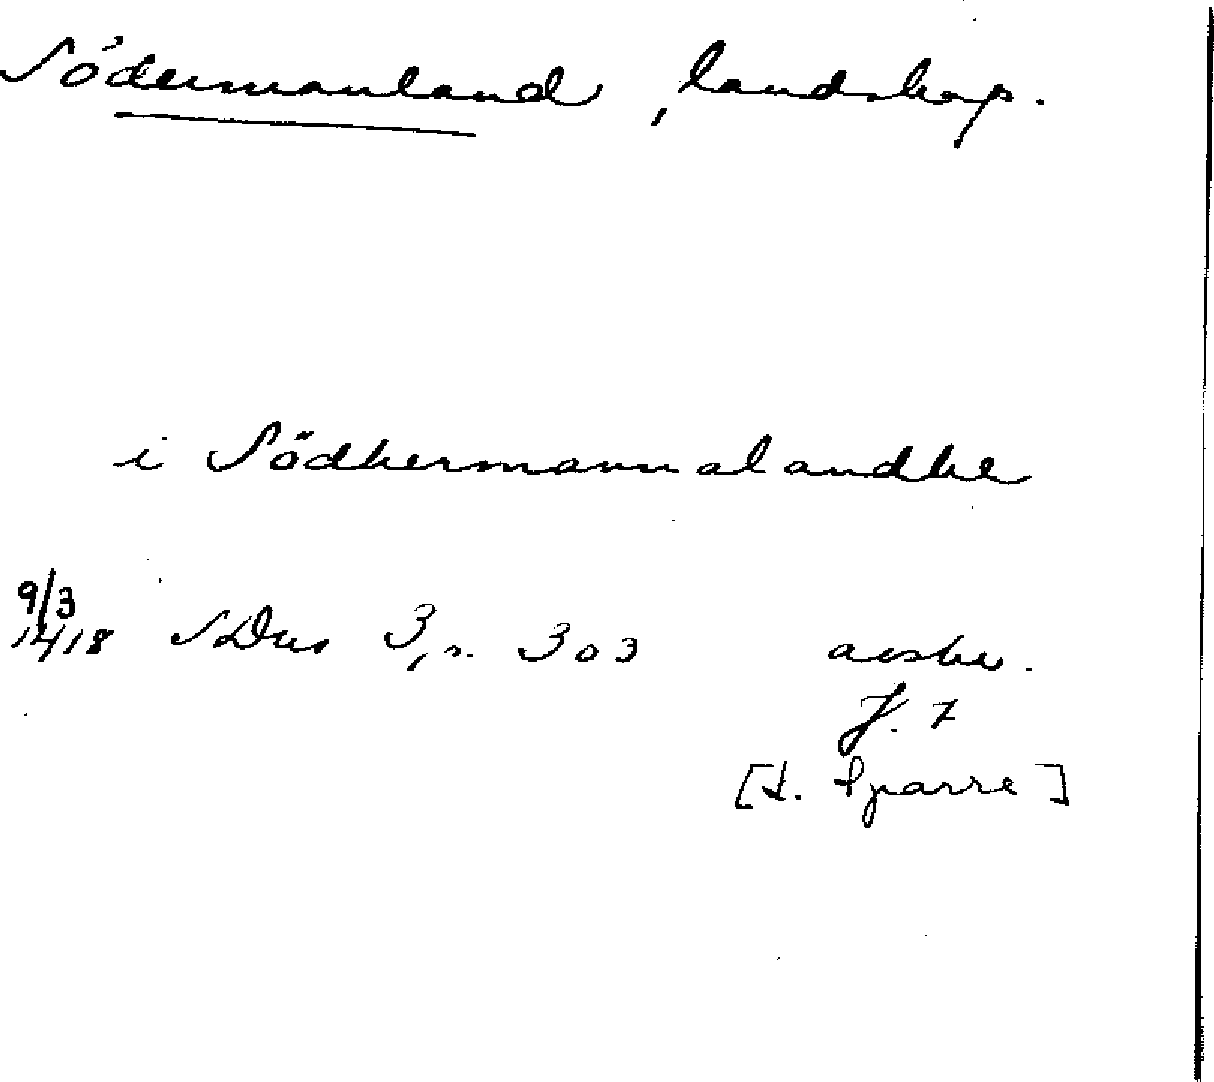 Södermanland, landskap.
i Södhermannalandhe
9/3
1418 SDns 3, s. 303 avskr.
[L. Sparre]